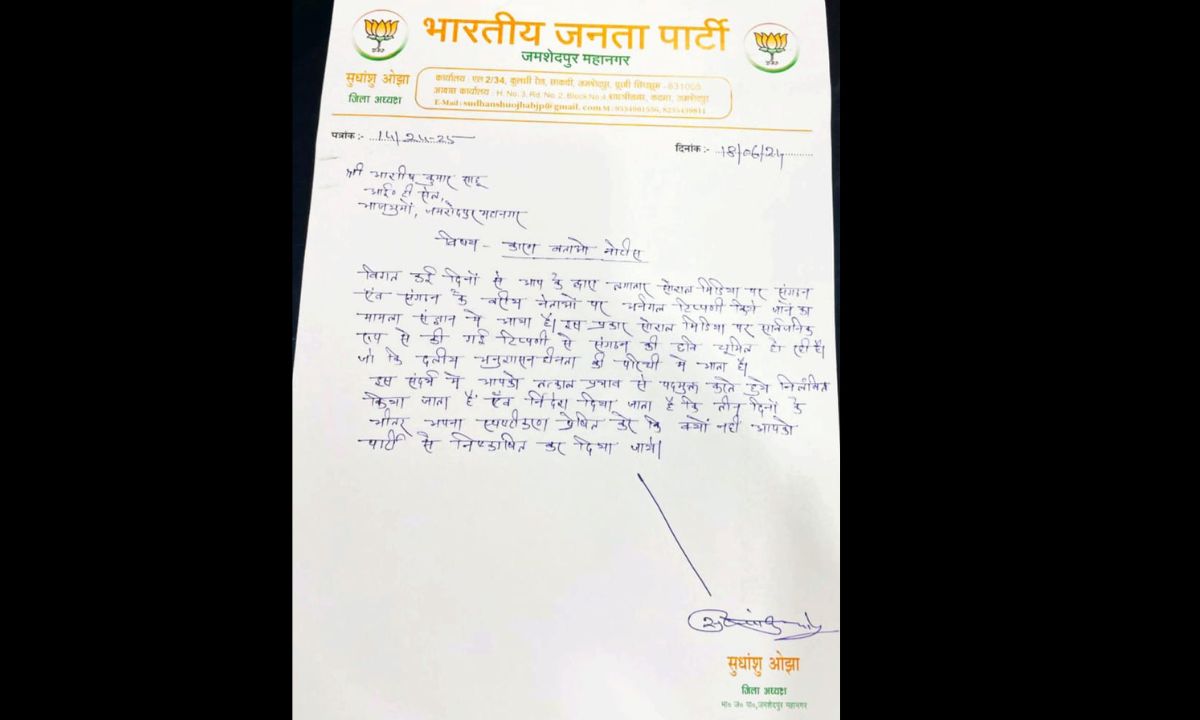 भारतीय जनता पार्टी
जमशेदपुर महानगर
सुधांशु ओझा
जिला अध्यक्ष
कार्यालय : एल 2/34, कुलसी रोड, साकची, जमशेदपुर, पूर्वी सिंहभूम - 831001
आवास कार्यालय : H. No. 3, Rd. No. 2, Block No.4 शास्त्रीनगर, कदमा, जमशेदपुर
E-Mail : sudhanshuojhabjp@gmail.com M.
पत्रांक :- 14/24-25
दिनांक :- 18/06/24
श्री आशीष कुमार साहू
आई० टी सेल,
भाजयुमो, जमशेदपुर महानगर
विषय - कारण बताओ नोटीस
विगत कई दिनों से आप के द्वारा लगातार सोशल मिडिया पर संगठन
एंव संगठन के वरीय नेताओं पर अनर्गल टिप्पणी किये जाने का
मामला संज्ञान में आया है। इस प्रकार सोशल मिडिया पर सार्वजनिक
रूप से की गई टिप्पणी से संगठन की छवि धूमिल हो रही है।
जो कि दलीय अनुशासन हीनता की परिधी में आता है।
इस संदर्भ में आपको तत्काल प्रभाव से पदमुक्त करते हुये निलंबित
किया जाता है एंव निर्देश दिया जाता है कि तीन दिनों के
भीतर अपना स्पष्टीकरण प्रेषित करे कि क्यों नहीं आपको
पार्टी से निष्काषित कर दिया जाये।
सुधांशु ओझा
जिला अध्यक्ष
भा० ज० पा०,जमशेदपुर महानगर